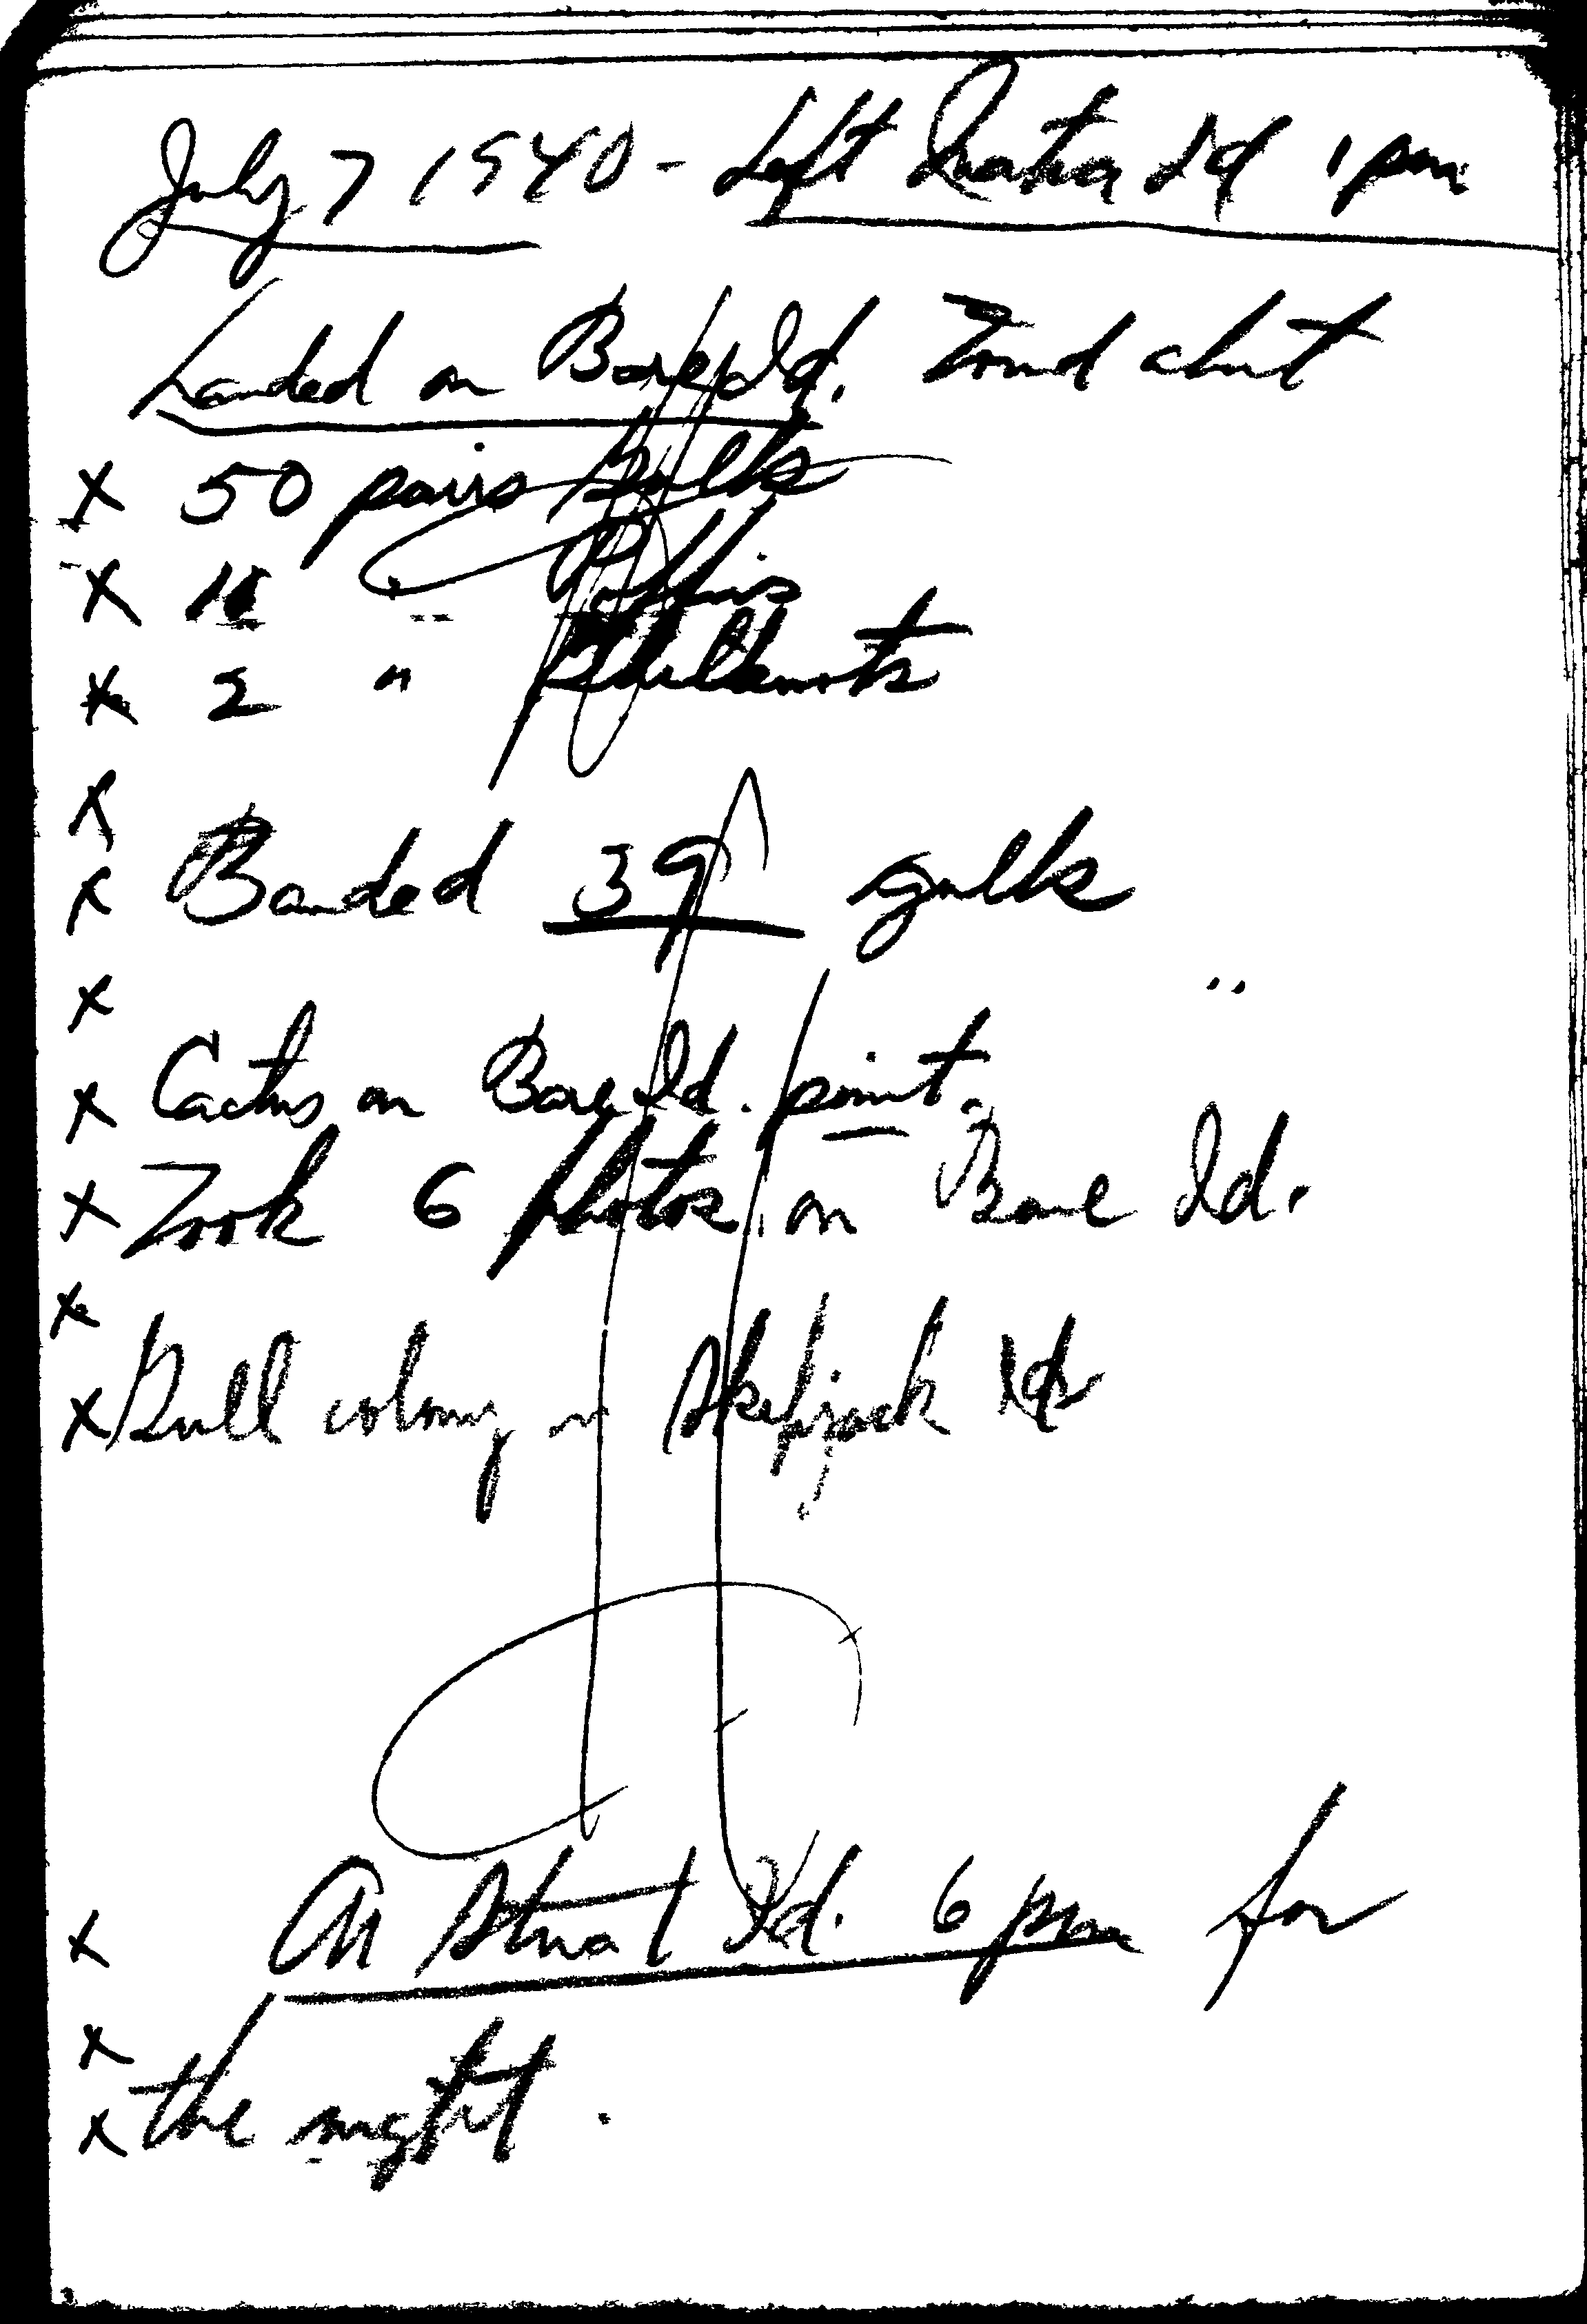 July 7 1940 - Left Matia Id 1 pm
Landed on Bare Id. Found about
x 50 pairs Gulls
x " Puffins
x 2 " Guillemots
x
x Banded 39 gulls
x
x Cactus on Bare Id. point.
x Took 6 photos on Bare Id.
x
x Gull colony on Skipjack Id
x At Stuart Id. 6 pm for
x
x the night.